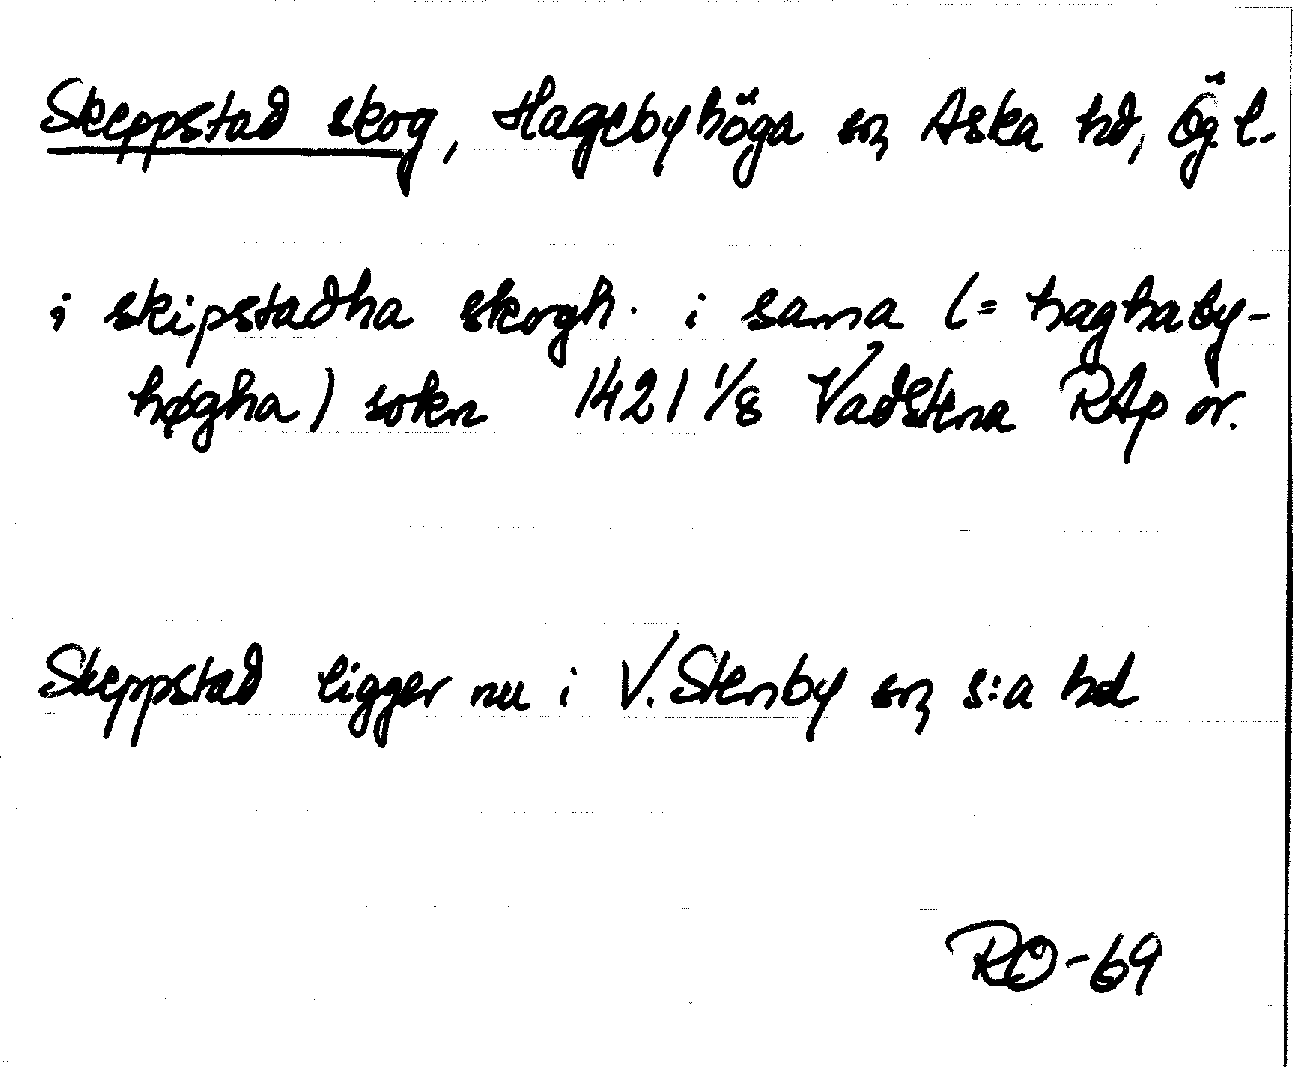 Skeppstad skog, Hagebyhöga sn, Aska hd, Ög. l.
i skipstadha skogh. i sama (= haghaby-
høgha) sokn 1421 1/8 Vadstena RAp or.
Skeppstad ligger nu i V. Stenby sn, s:a hd
RO-69